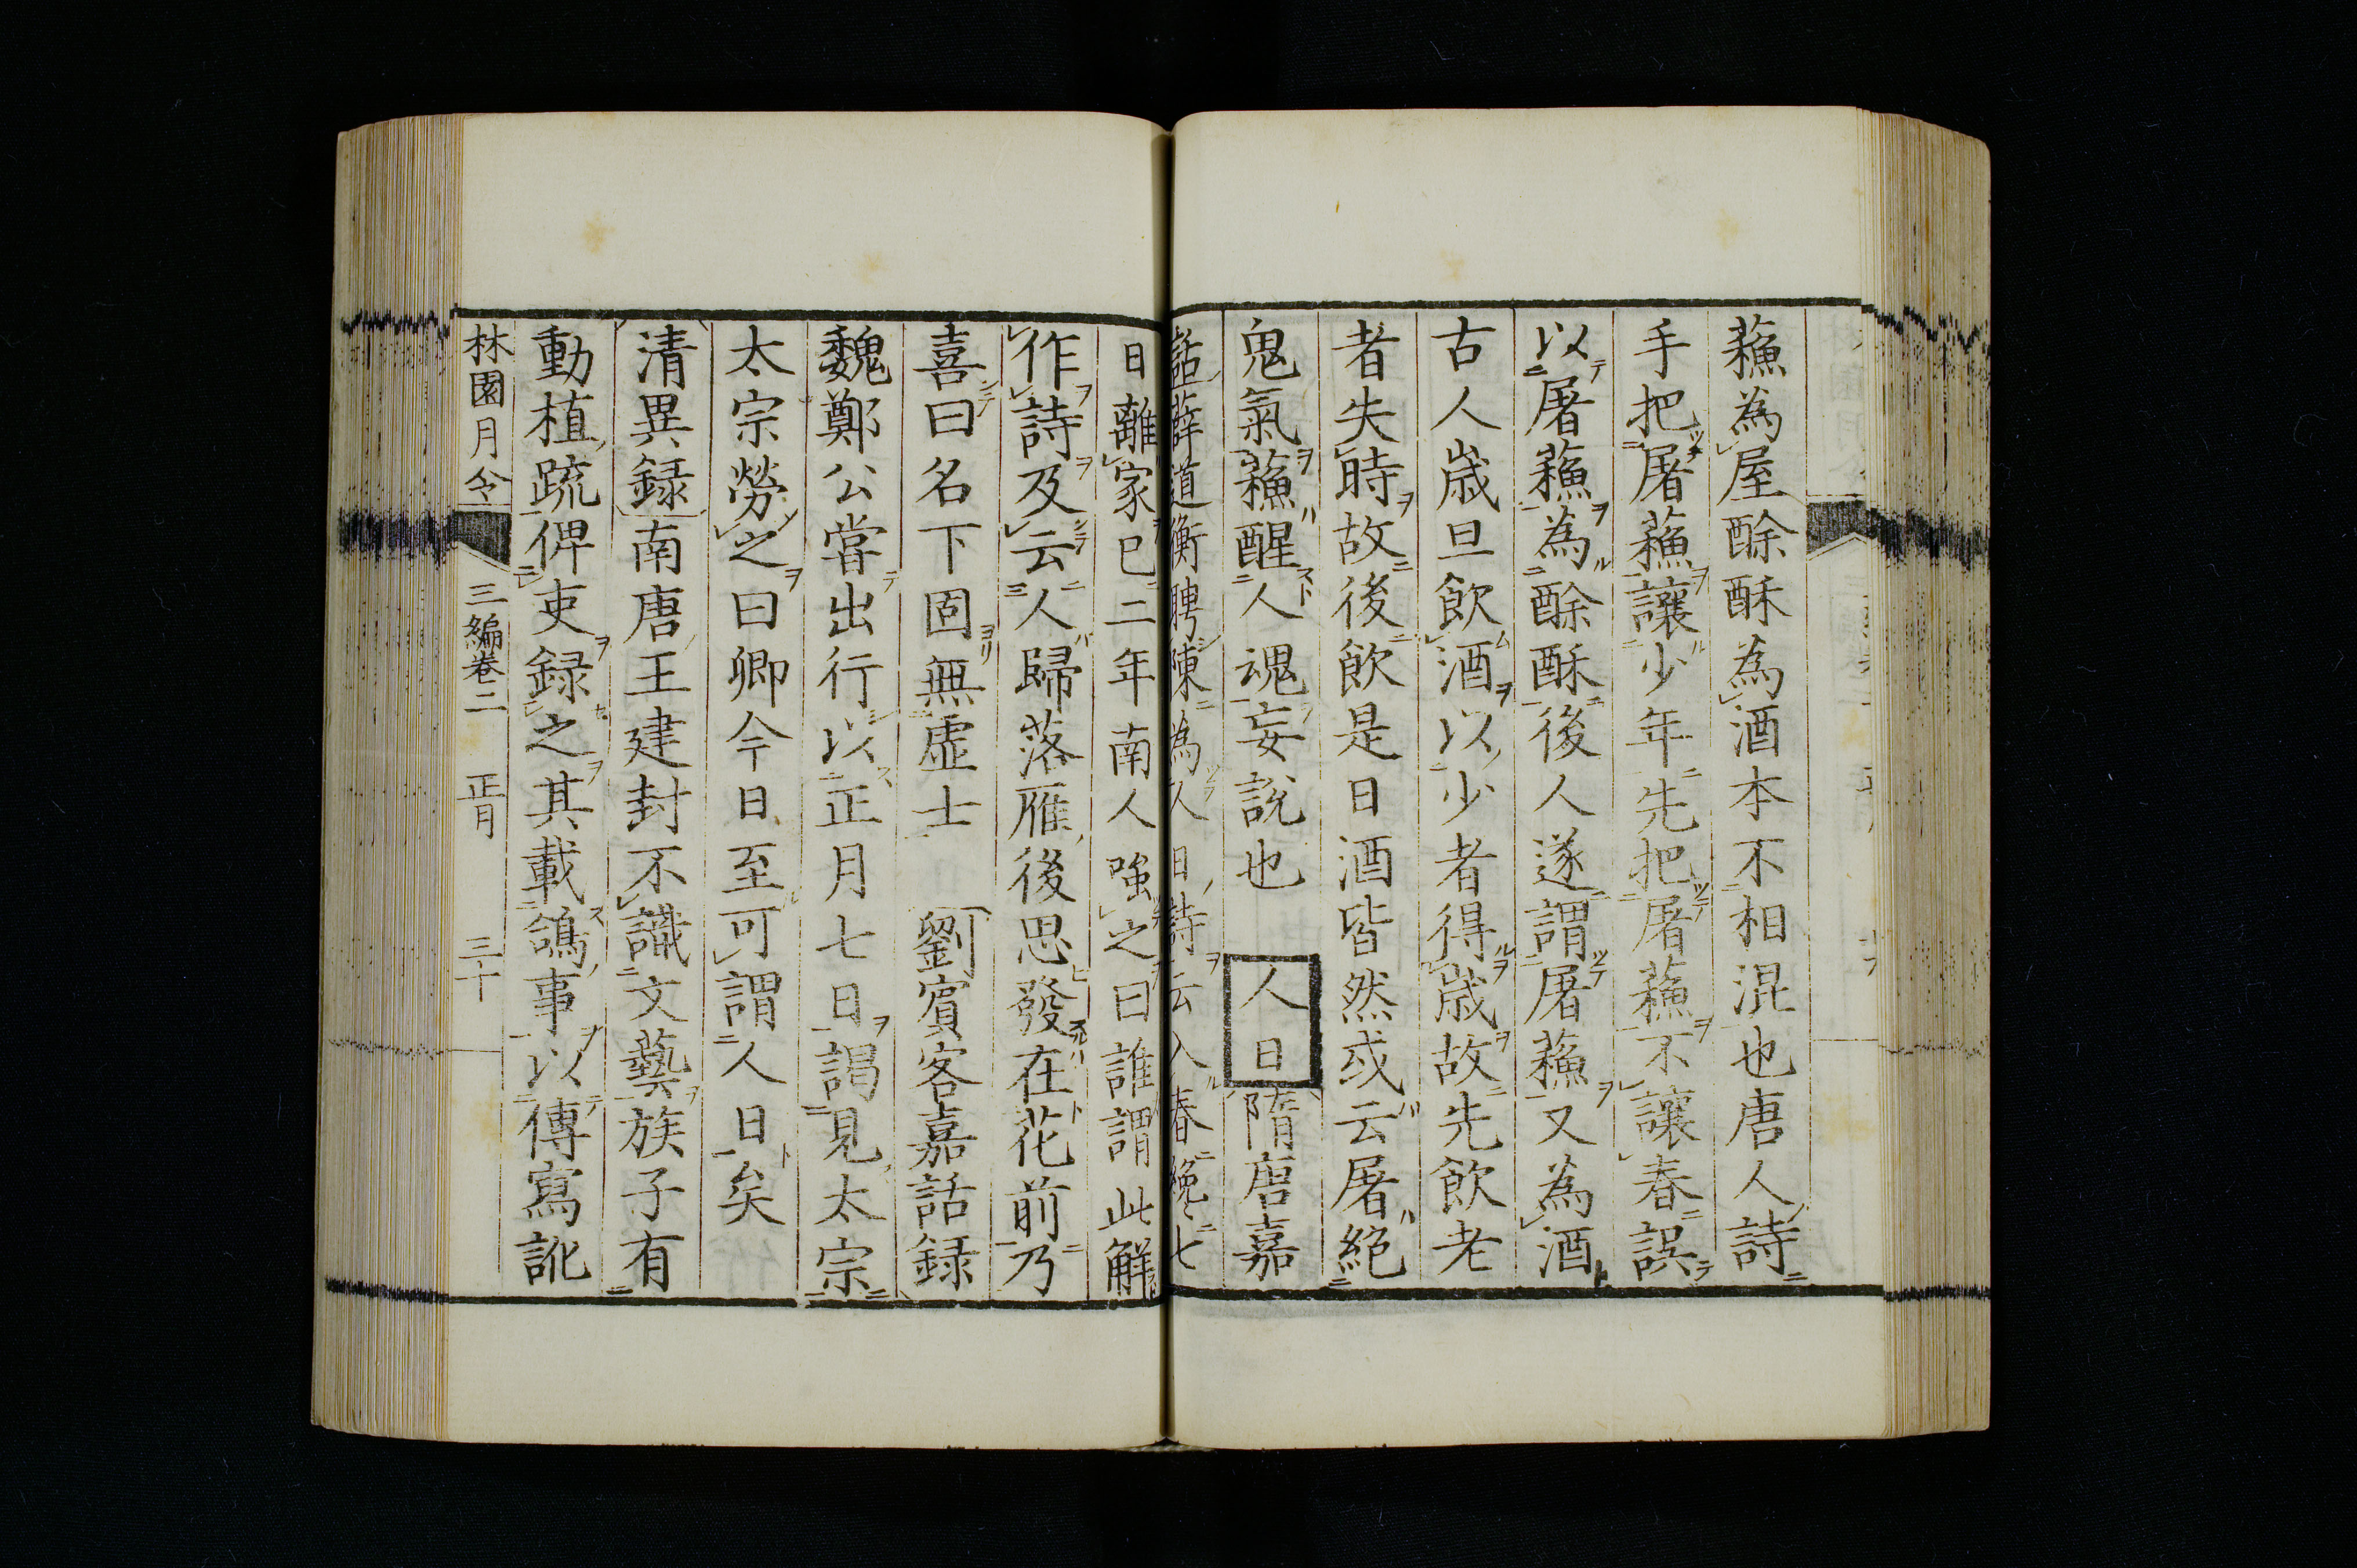 蘓為屋酴酥為酒本不相混也唐人詩
手把屠蘓讓少年先把屠蘓不讓春誤
以屠蘓為酴酥後人遂謂屠蘓又為酒
古人歳旦飲酒以少者得歳故先飲老
者失時故後飲是日酒皆然或云屠絕
鬼氣蘓醒人魂妄說也 人日 隋唐嘉
話薛道衡聘陳為人日詩云入春纔七
日離家已二年南人強之曰誰謂此解
作詩及云人歸落雁後思發在花前乃
喜曰名下固無虛士 劉賓客嘉話録
魏鄭公嘗出行以正月七日謁見太宗
太宗勞之曰卿今日至可謂人日矣
清異録南唐王建封不識文藝族子有
動植疏俾吏録之其載鴿事以傳寫訛
林園月令 三編卷二 正月 三十